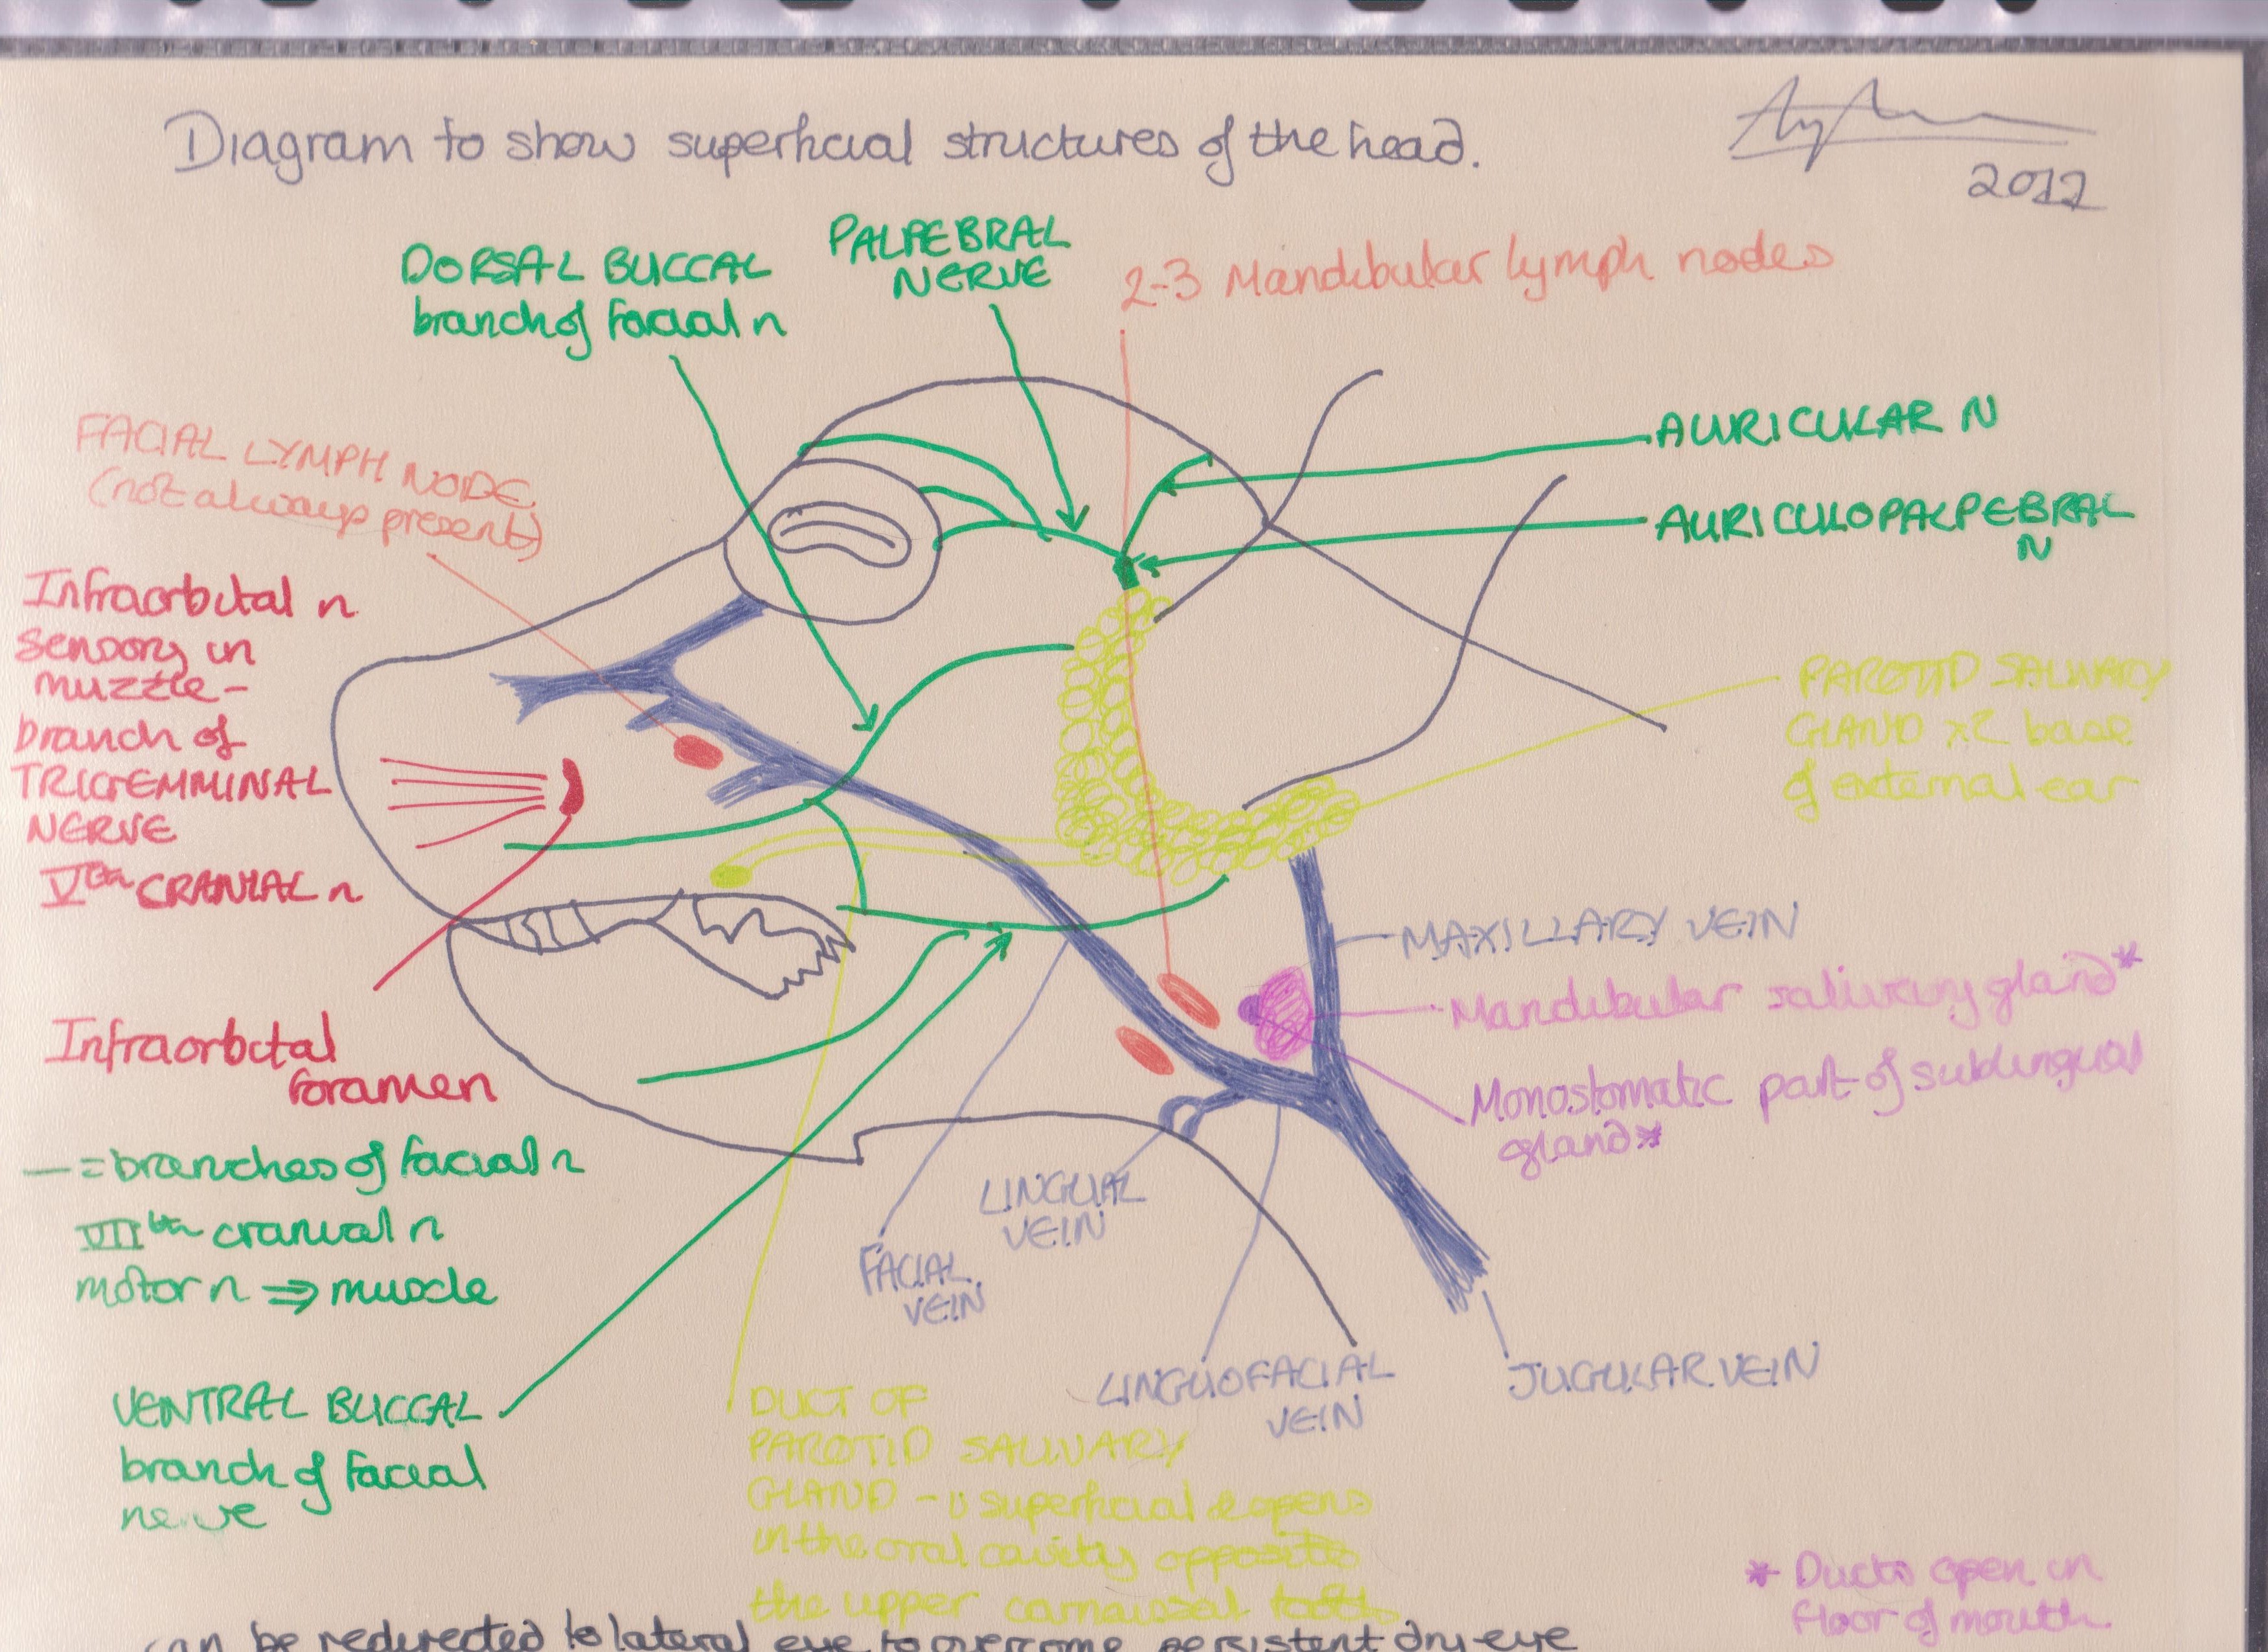 Diagram to show superficial structures of the head.
2012
DORSAL BUCCAL
branch of facial n
PALPEBRAL
NERVE
2-3 Mandibular lymph nodes
FACIAL LYMPH NODE
(not always present)
AURICULAR N
AURICULOPALPEBRAL
N
Infraorbital n
sensory in
muzzle -
branch of
TRIGEMMINAL
NERVE
Vth CRANIAL n
PAROTID SALIVARY
GLAND x2 base
of external ear
MAXILLARY VEIN
Mandibular salivary gland*
Monostomatic part of sublingual
gland*
Infraorbital
foramen
— = branches of facial n
VIIth cranial n
motor n ⇒ muscle
LINGUAL
VEIN
FACIAL
VEIN
LINGUOFACIAL
VEIN
JUGULAR VEIN
VENTRAL BUCCAL
branch of facial
nerve
DUCT OF
PAROTID SALIVARY
GLAND - superficial & opens
in the oral cavity opposite
the upper carnassal tooth
* Ducts open in
floor of mouth
can be redirected to lateral eye to overcome persistent dry eye